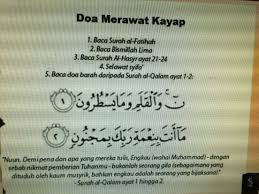 Doa Merawat Kayap
1. Baca Surah al-Fatihah
2. Baca Bismillah Lima
3. Baca Surah Al-Hasyr ayat 21-24
4. Selawat syifa'
5. Baca doa barah daripada Surah al-Qalam ayat 1-2:
نٓ ۚ وَالْقَلَمِ وَمَا يَسْطُرُونَ ١
مَا أَنتَ بِنِعْمَةِ رَبِّكَ بِمَجْنُونٍ ٢
"Nuun. Demi pena dan apa yang mereka tulis, Engkau (wahai Muhammad) - dengan
sebab nikmat pemberian Tuhanmu - bukanlah seorang gila (sebagaimana yang
dituduh oleh kaum musyrik, bahkan engkau adalah seorang yang bijaksana)"
- Surah al-Qalam ayat 1 hingga 2.